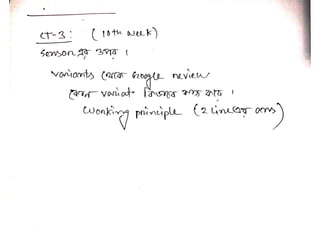 CT-3: (10th week)
Sensor এর উপর ।
Variants থেকে Google review
কোন variat কিভাবে কাজ করে ।
Working principle (2 line এর ans)